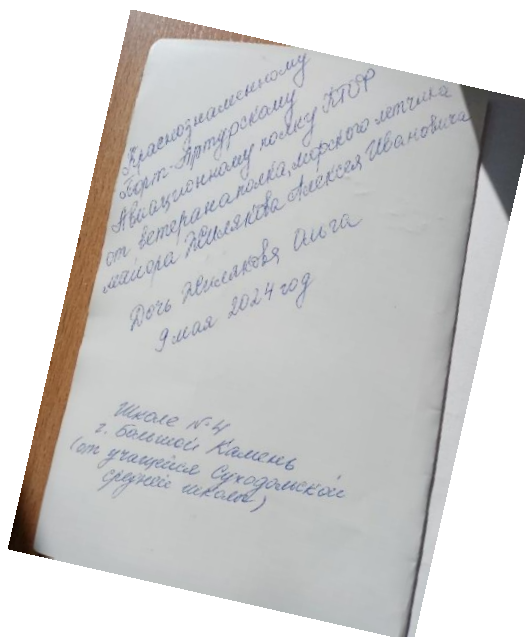 Краснознаменному
Порт-Артурскому
Авиационному полку ТОФ
от ветерана полка, морского летчика
майора Жилякова Алексея Ивановича
Дочь Жилякова Ольга
9 мая 2024 год
Школе №4
г. Большой Камень
(от учащейся Суходольской
средней школы)